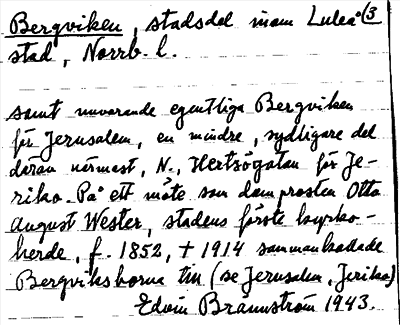 Bergviken, stadsdel inom Luleå (3
stad, Norrb. l.
samt nuvarande egentliga Bergviken
för Jerusalem, en mindre, sydligare del
därav närmast, N., Hertsögatan för Je-
riko. På ett möte som domprosten Otto
August Wester, stadens förste kyrko-
herde, f. 1852, † 1914 sammankallade
Bergviksborna till (se Jerusalem, Jeriko)
Edvin Brännström 1943.